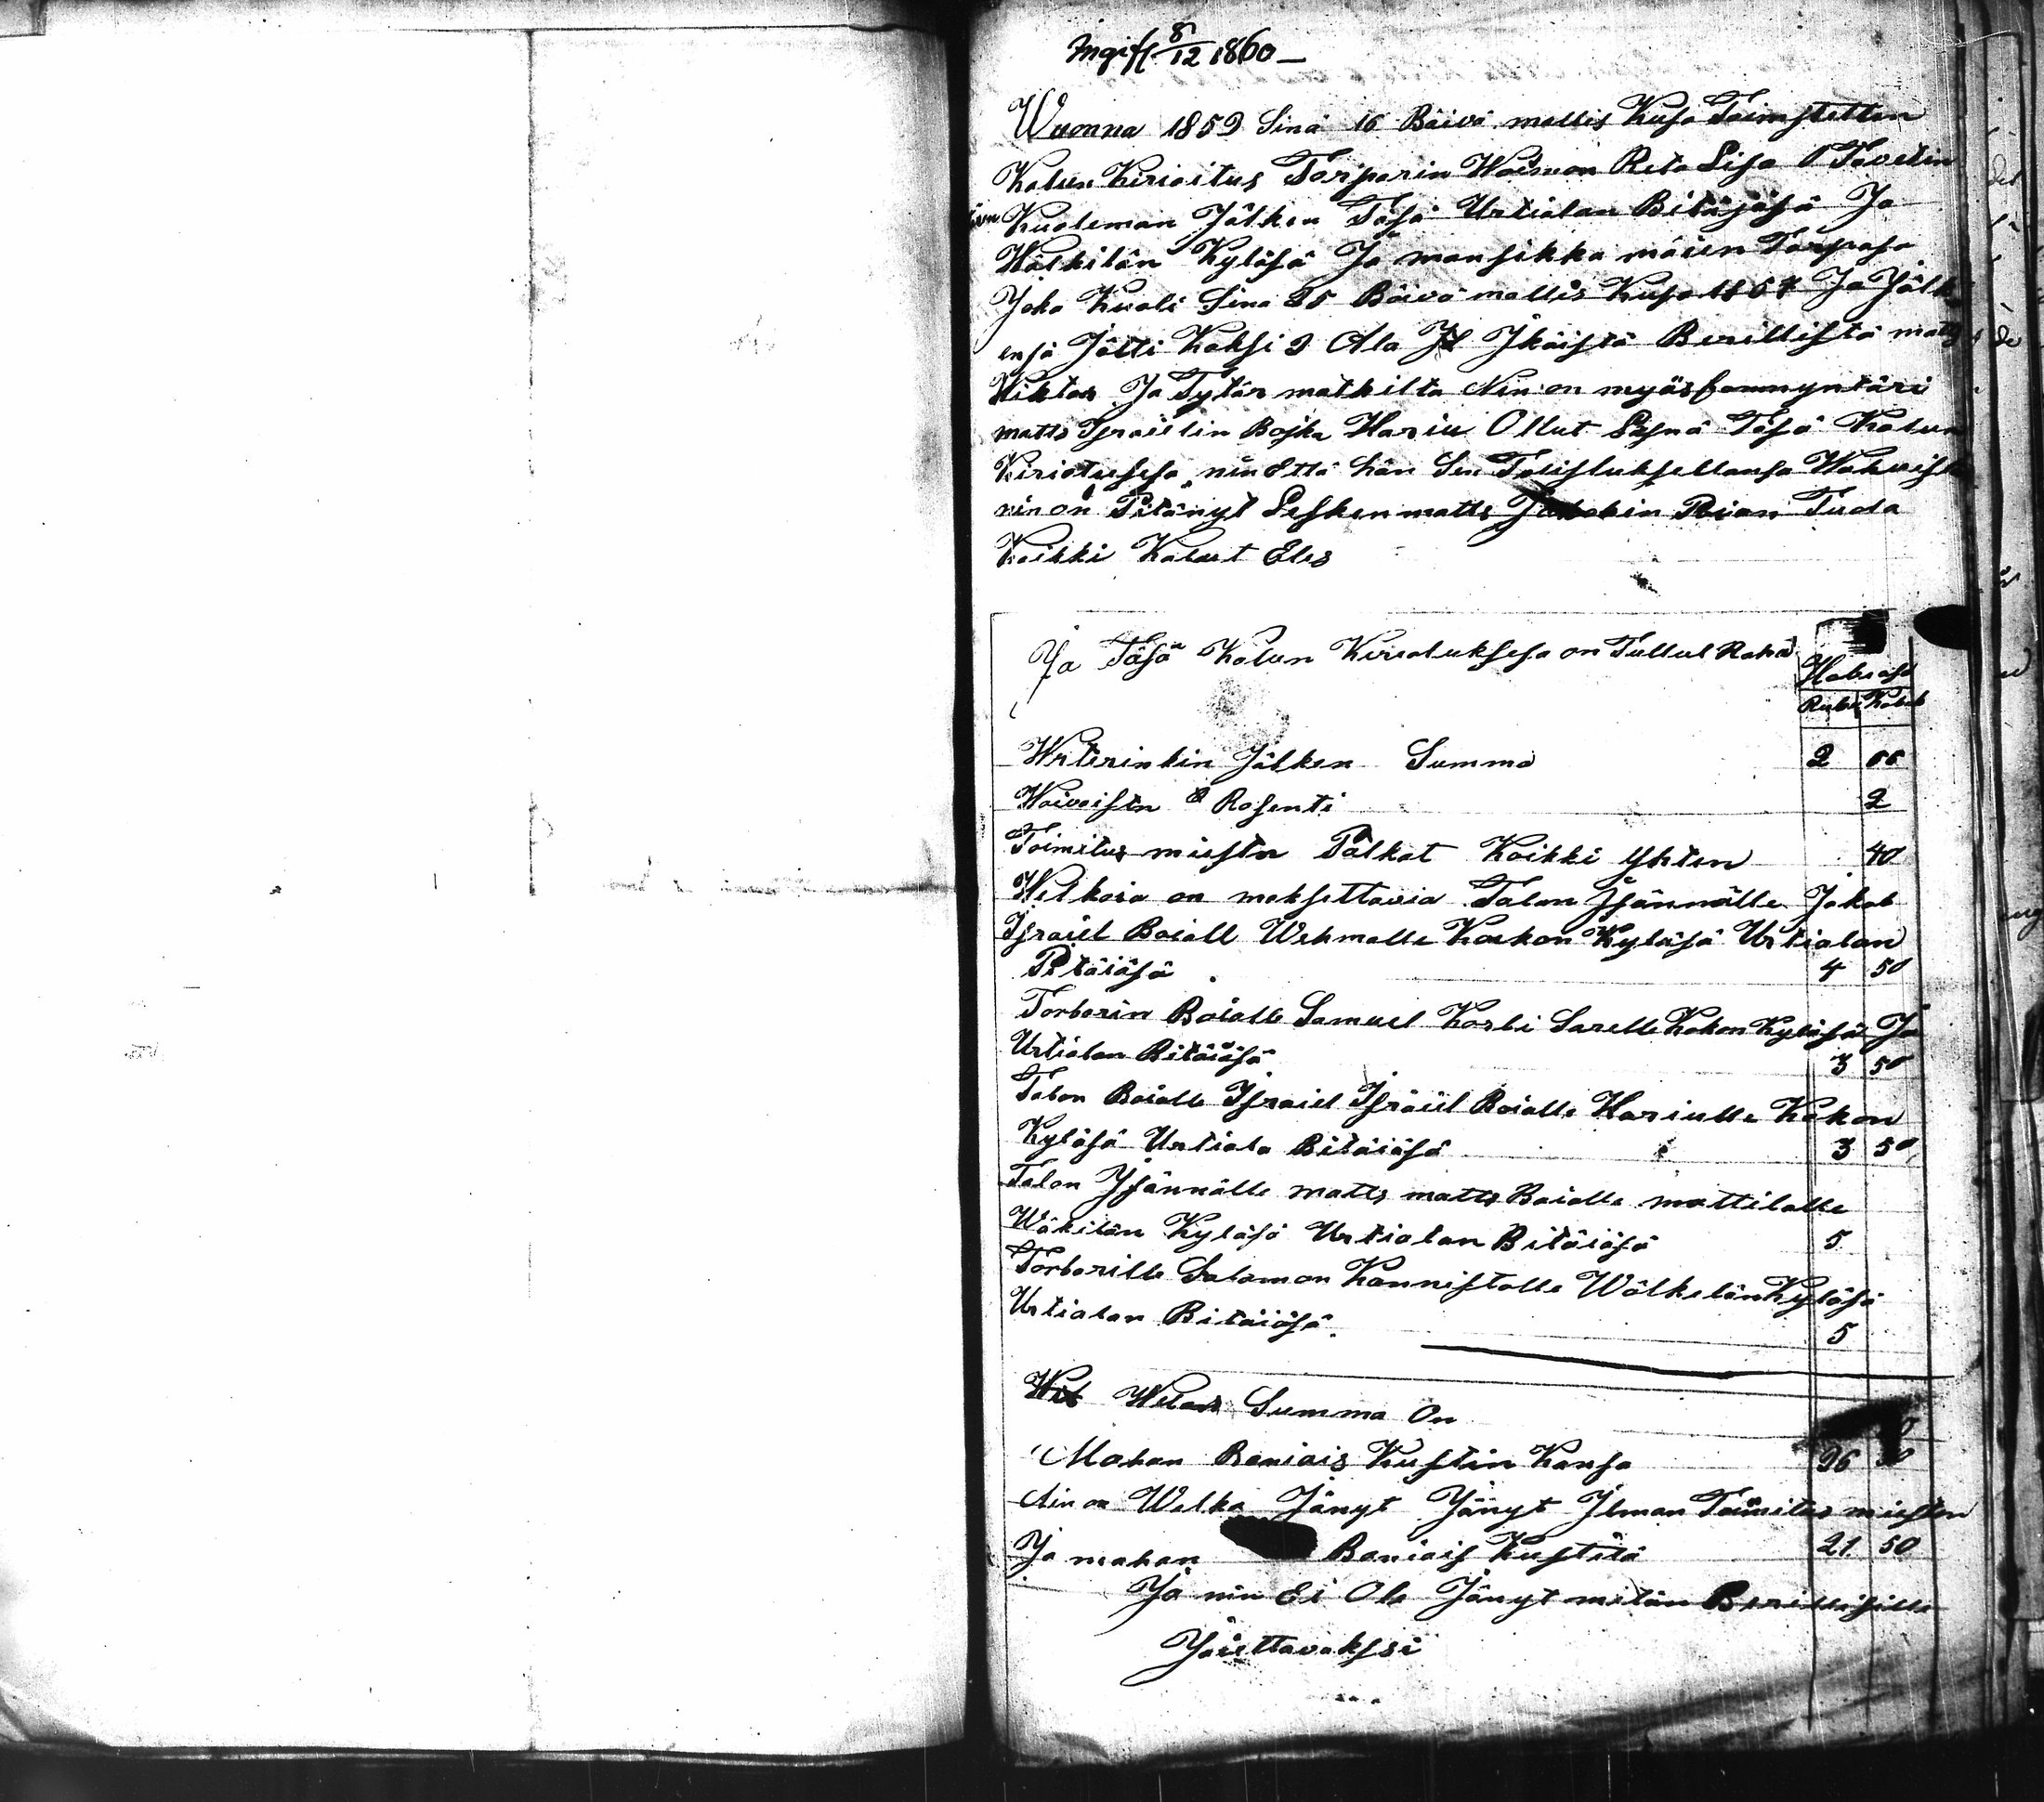 Ingift 8/12 1860 –
Wuonna 1859 Sinä 16 Bäivä mallis Kusa Toimstettin
Kalun Kirioitus Torparin Waimon Reta Lisa Tavetin
Kuoleman Jälken Täsä Urtialan Bitäjäsä Ja
Wälkilän Kyläsä Ja mansikka mäien Torpasa
Joka Kuali Sina 25 Bäivä mallis Kusa 1857 Ja Jälk
ensä Jätti Kaksi 2 Ala Ikäistä Berillistä matts
Wiktor Ja Tytär mathilta Nin on myös
matts Israielin Bojka Hariu Ollut Läsnä Täsä Kalun
Kiriotuksesa nin että hän Sen Todistuksellansa Wahvista
nin on Pitänyt Lesken matts Jakobin Poian Tuoda
Kaikki Kalut Eles
Ja Täsä Kalun Kirioituksesa on Tullut Raha
Hobiasa
Rubl Kobek
Wrterinkin Jälken Summa 2 66
Waivaistn Rosenti 2
Toimitus miestn Palkat Kaikki Yhten 40
Welkoia on maksettavia Talon Isännälle Jakob
Israiel Boiall Wehmalle Kaukon Kyläsä Urtialan
Pitäiäsä 4 50
Torbarin Boialle Samuel Korbi Sarelle Kokon Kyläsä Ja
Urtialan Bitäiäsä 3 50
Talon Boialle Israiel Israiel Boialle Hariulle Kokon
Kyläsä Urtiala Bitäiäsä 3 50
Talon Isännälle matts matts Boialle mattilalle
Wäkilän Kyläsä Urtialan Bitäiäsä 5
Torbarille Salomon Kannistolle Wälkelän Kyläsä
Urtialan Bitäiäsä 5
Welas Summa On
Mahan Baniais Kustin Kansa 26 50
Nin on Welka Jänyt Jänyt Ilman Toimitus miesten
Ja mahan Baniais Kustitä 21 50
Ja nin Ei Ole Jänyt mitän Berillisille
Jaiettavaksi